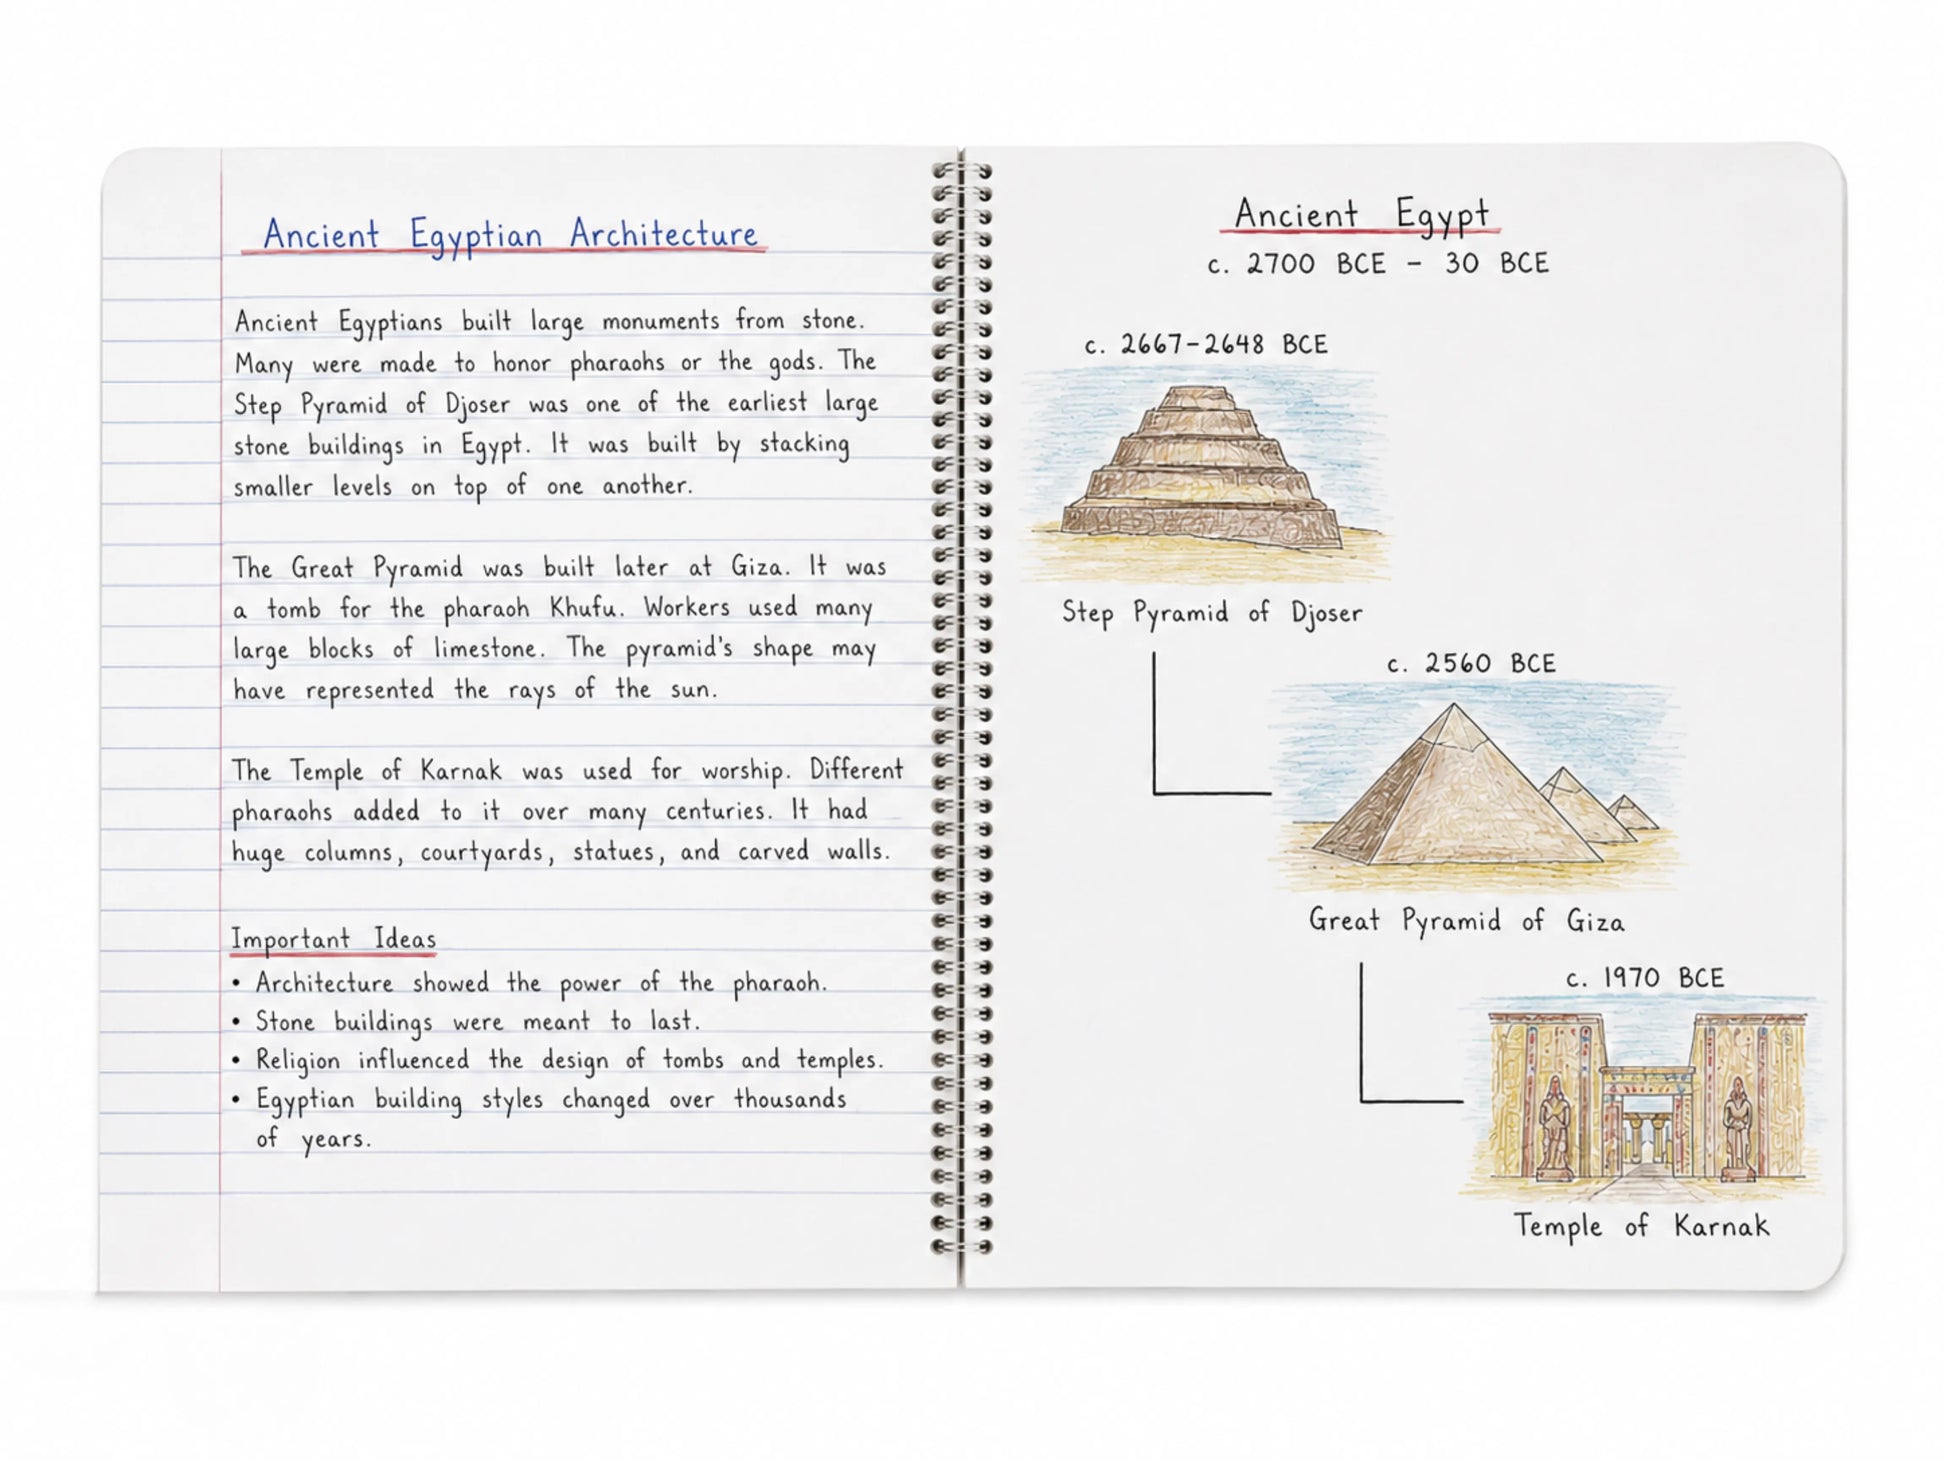 Ancient Egyptian Architecture
Ancient Egyptians built large monuments from stone.
Many were made to honor pharaohs or the gods. The
Step Pyramid of Djoser was one of the earliest large
stone buildings in Egypt. It was built by stacking
smaller levels on top of one another.
The Great Pyramid was built later at Giza. It was
a tomb for the pharaoh Khufu. Workers used many
large blocks of limestone. The pyramid's shape may
have represented the rays of the sun.
The Temple of Karnak was used for worship. Different
pharaohs added to it over many centuries. It had
huge columns, courtyards, statues, and carved walls.
Important Ideas
• Architecture showed the power of the pharaoh.
• Stone buildings were meant to last.
• Religion influenced the design of tombs and temples.
• Egyptian building styles changed over thousands
of years.
Ancient Egypt
c. 2700 BCE - 30 BCE
c. 2667-2648 BCE
Step Pyramid of Djoser
c. 2560 BCE
Great Pyramid of Giza
c. 1970 BCE
Temple of Karnak